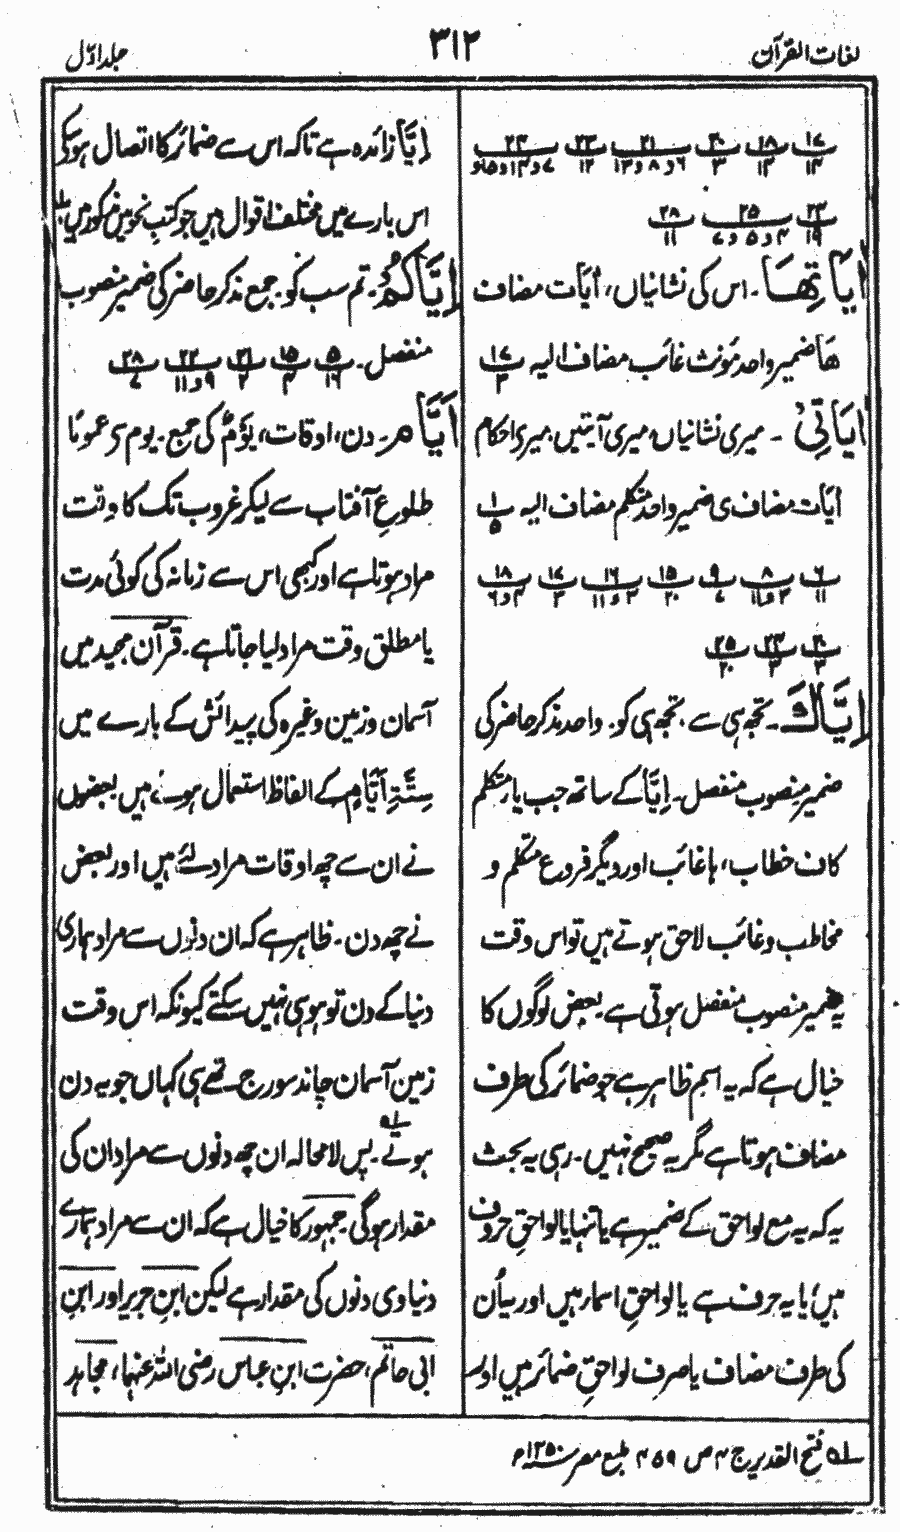 لغات القرآن
۳۱۲
جلد اوّل
۱۷ ۱۸ ۲۰ ۲۱ ۲۳ ۲۴
۱۴ ۱۳ ۳ ۶ و ۸ و ۱۳ ۱۲
۲۴ ۲۵ ۲۸
۱۹ ۴ و ۵ و ۷ ۱۱
اٰیَاتِھَا ۔ اس کی نشانیاں، اٰیَات مضاف
ھَا ضمیر واحد مؤنث غائب مضاف الیہ ۱۷
۳
اٰیَاتِیْ ۔ میری نشانیاں، میری آیتیں، میری احکام
اٰیَات مضاف ی ضمیر واحد متکلم مضاف الیہ ۱
۵
۶ ۸ ۹ ۱۵ ۱۶ ۱۷ ۱۸
۱۱ ۳ و ۱۱ ۷ ۲۰ ۳ و ۱۱ ۳ ۴ و ۶
۲۰ ۲۴ ۲۵
۳ ۳ ۲۰
اِیَّاكَ ۔ تجھ ہی سے، تجھ ہی کو۔ واحد مذکر حاضر کی
ضمیر منصوب منفصل۔ اِیَّا کے ساتھ جب یار متکلم
کاف خطاب، ہا غائب، اور دیگر فروع متکلم و
مخاطب و غائب لاحق ہوتے ہیں تو اس وقت
یہ ضمیر منصوب منفصل ہوتی ہے۔ بعض لوگوں کا
خیال ہے کہ یہ اسم ظاہر ہے جو ضمائر کی طرف
مضاف ہوتا ہے مگر یہ صحیح نہیں۔ رہی یہ بحث
یہ کہ یہ مع لواحق کے ضمیر ہے یا تنہا یا لواحق حروف
ہیں؛ یا یہ حرف ہے یا لواحق اسمار ہیں اور بیان
کی طرف مضاف یا صرف لواحق ضمائر ہیں اور
اِیَّا زائدہ ہے تاکہ اس سے ضمائر کا اتصال ہو کی
اس بارے میں مختلف اقوال ہیں جو کتبِ نحو میں مذکور ہیں
اِیَّاکُمْ ۔ تم سب کو۔ جمع مذکر حاضر کی ضمیر منصوب
منفصل۔ ۵ ۱۵ ۲۱ ۲۲ ۲۸
۱۶ ۴ ۲ ۹ و ۱۱ ۷
اَیَّام ۔ دن، اوقات، یَوْمٌ کی جمع۔ یوم سی عمومًا
طلوعِ آفتاب سے لیکر غروب تک کا وقت
مراد ہوتا ہے اور کبھی اس سے زمانہ کی کوئی مدت
یا مطلق وقت مراد لیا جاتا ہے۔ قرآن مجید میں
آسمان و زمین وغیرہ کی پیدائش کے بارے میں
سِتَّةِ اَیَّامٍ کے الفاظ استعمال ہوئے ہیں بعضوں
نے ان سے چھ اوقات مراد لئے ہیں اور بعض
نے چھ دن۔ ظاہر ہے کہ ان دنوں سے مراد ہماری
دنیا کے دن تو ہو ہی نہیں سکتے کیونکہ اس وقت
زمین آسمان چاند سورج تھے ہی کہاں جو یہ دن
ہوتے۔ پس لامحالہ ان چھ دنوں سے مراد ان کی
مقدار ہوگی۔ جمہور کا خیال ہے کہ ان سے مراد ہمارے
دنیاوی دنوں کی مقدار ہے لیکن ابنِ جریر اور ابنِ
ابی حاتم، حضرت ابنِ عباس رضی اللہ عنہما، مجاہد
لہ فتح القدیر ج ۴ ص ۴۵۹ طبع مصر ۱۳۵۰ھ